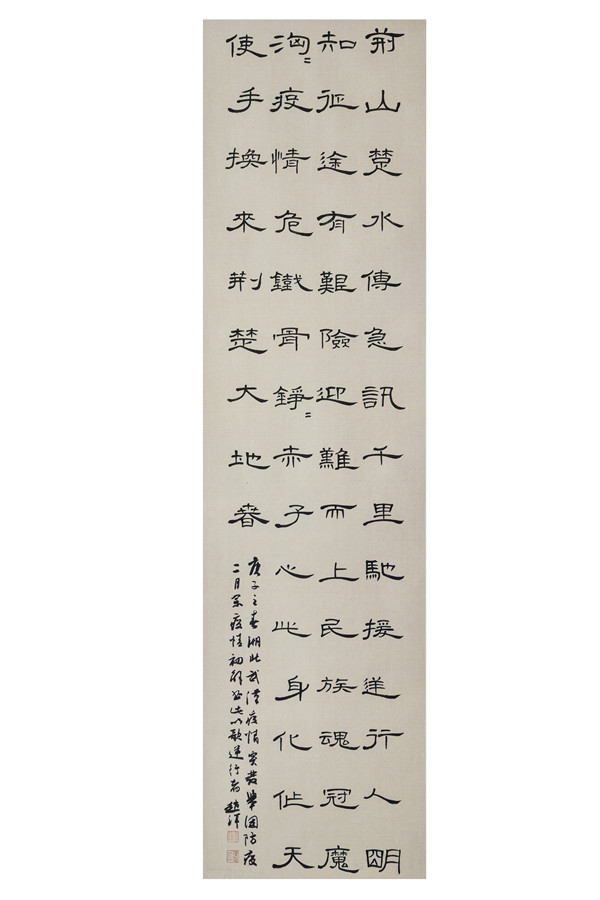 荊山楚水傳急訊千里馳援逆行人明
知征途有艱險迎難而上民族魂冠魔
洶〻疫情危鐵骨錚〻赤子心此身化作天
使手換來荊楚大地春
庚子之春湖北武漢疫情突發舉國防疫
二月疫情初解此以歌逆行者